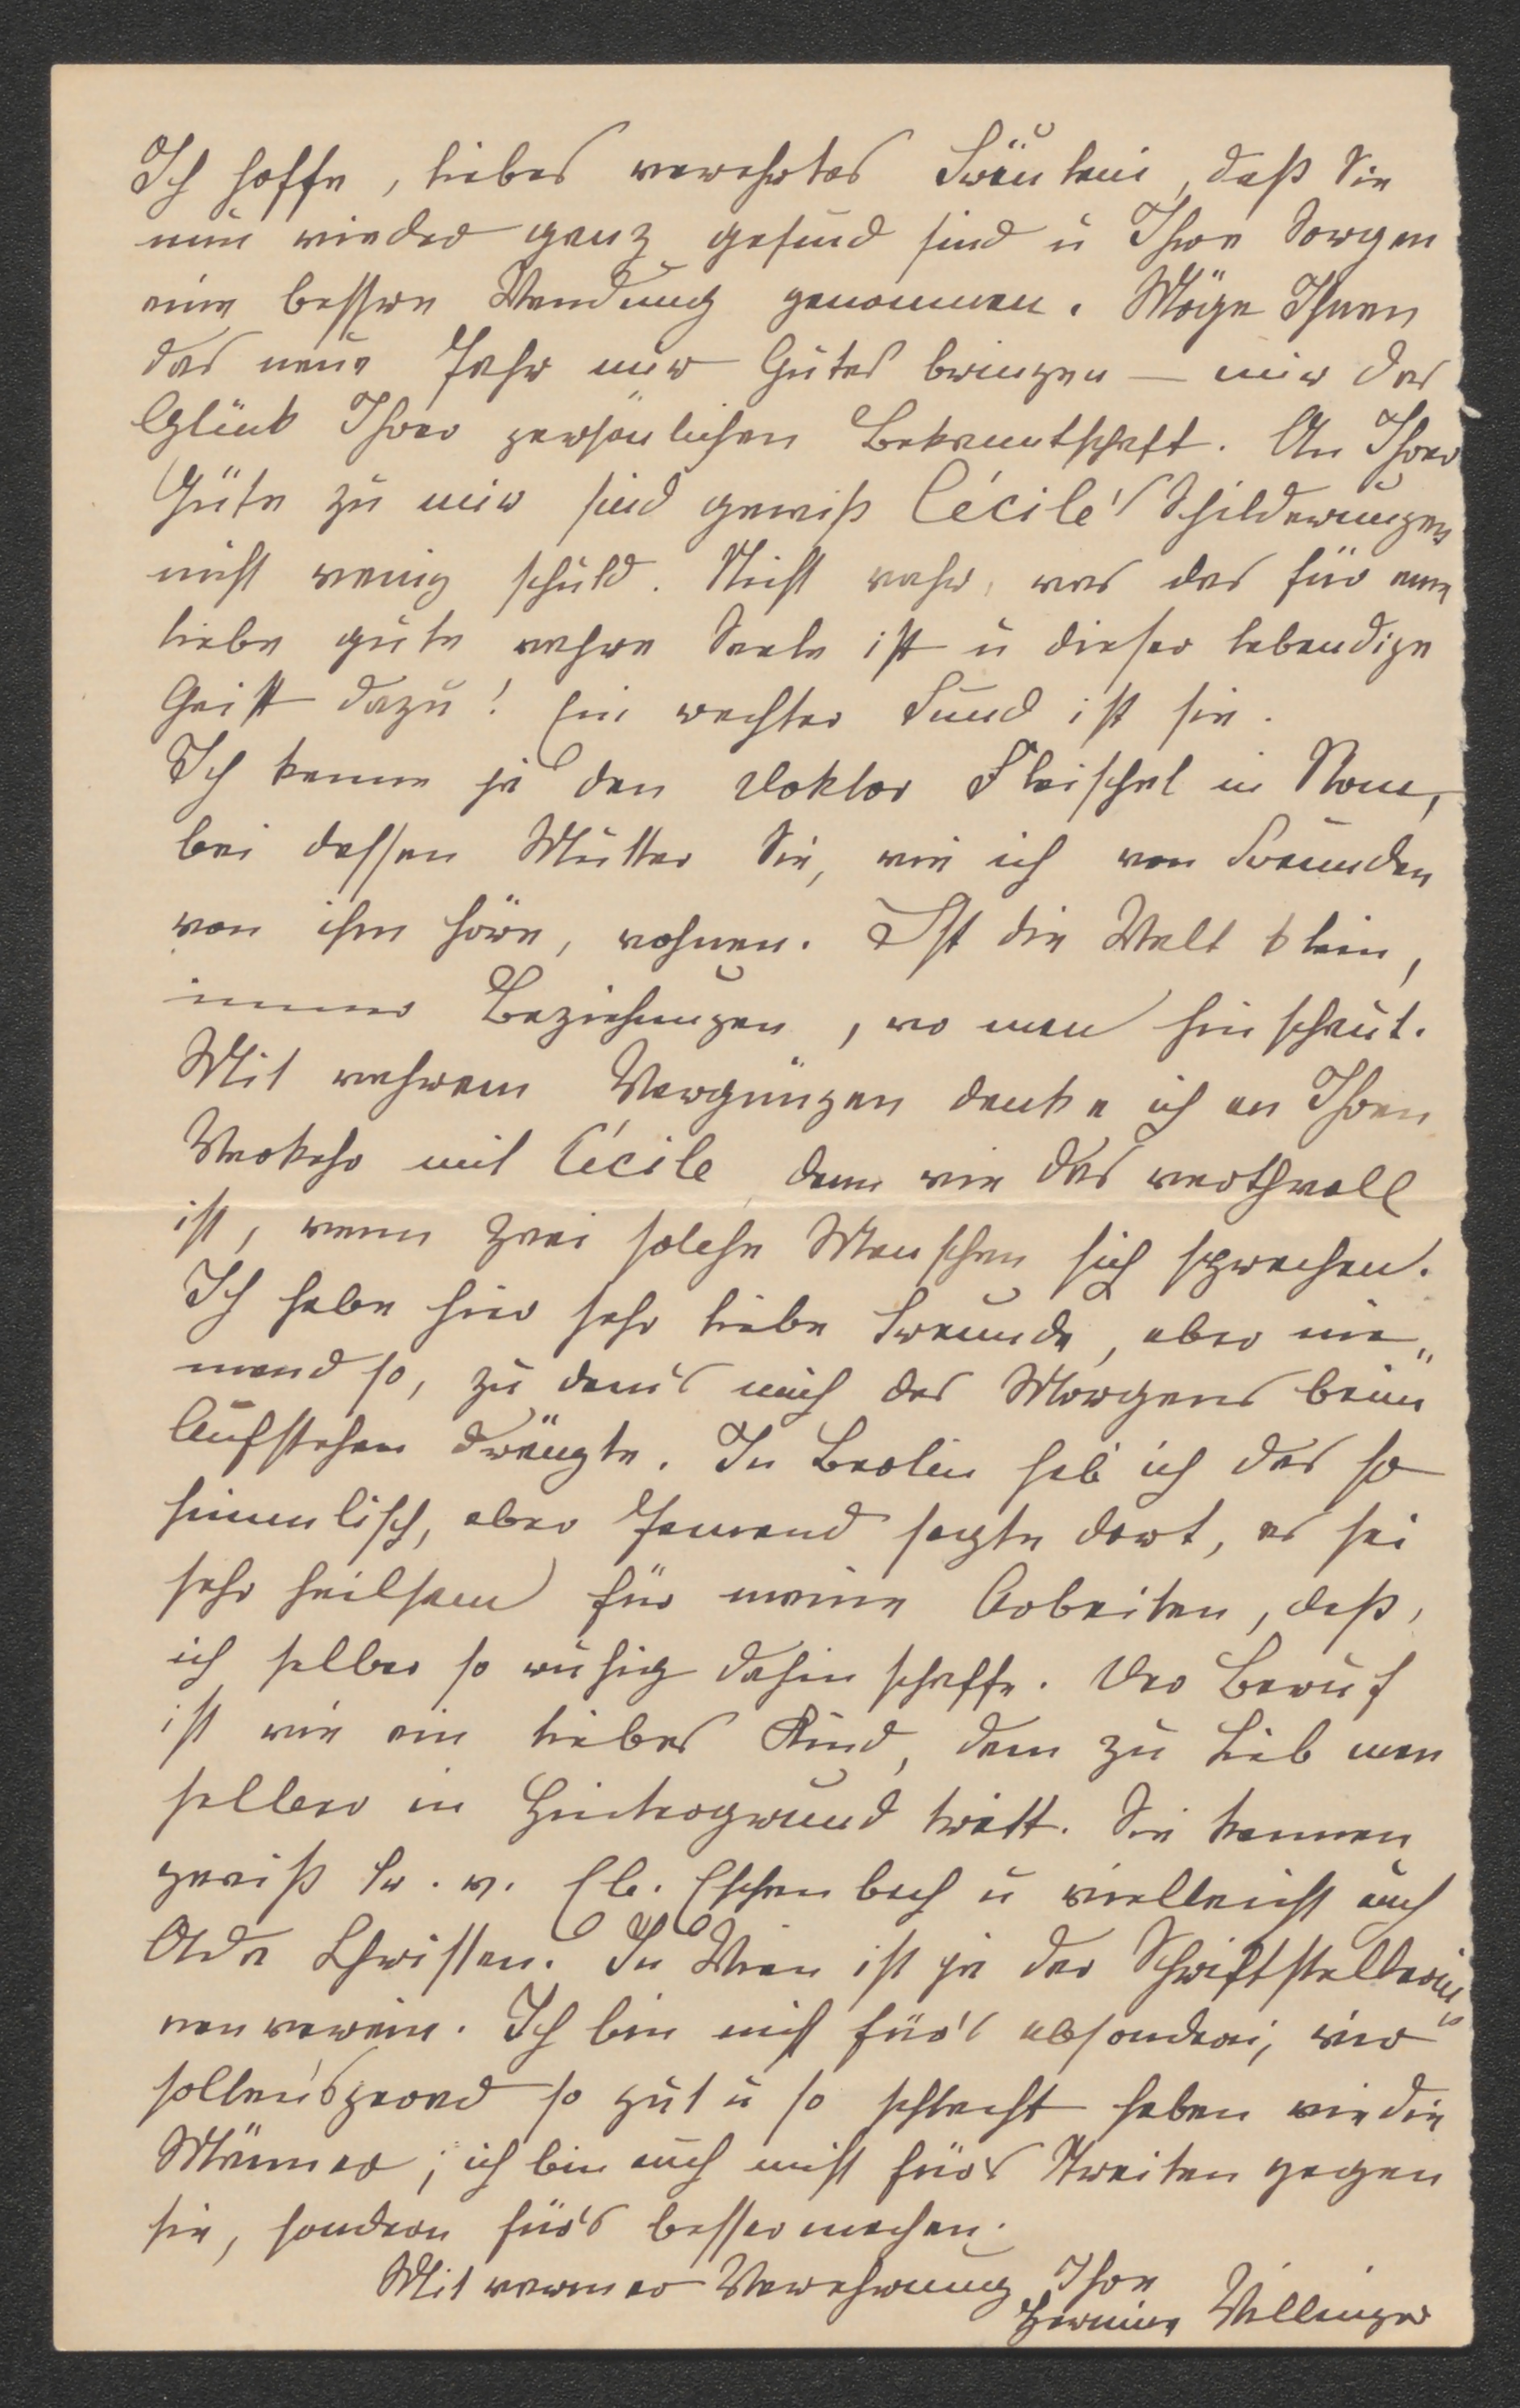 Ich hoffe, liebes verehrtes Fräulein, daß Sie
nun wieder ganz gesund sind u Ihre Sorgen
eine bessere Wendung genommen. Möge Ihnen
das neue Jahr nur Gutes bringen — mir das
Glück Ihrer persönlichen Bekanntschaft. An Ihrer
Güte zu mir sind gewiß Cécile's Schilderungen
nicht wenig schuld. Nicht wahr, was das für eine
liebe gute wahre Seele ist u dieser lebendige
Geist dazu! Ein rechter Fund ist sie.
Ich kenne ja den Doktor Fleischel in Rom,
bei dessen Mutter Sie, wie ich von Freunden
von ihm höre, wohnen. Ist die Welt klein,
immer Beziehungen, wo man hinschaut.
Mit wahrem Vergnügen denke ich an Ihren
Verkehr mit Cécile, denn wie das werthvoll
ist, wenn zwei solche Menschen sich sprechen.
Ich habe hier sehr liebe Freunde, aber nie„
mand so, zu dem's mich des Morgens beim
Aufstehen drängte. In Berlin hab ich das so
himmlisch, aber Jemand sagte dort, es sei
sehr heilsam für meine Arbeiten, daß,
ich selber so ruhig dahin schaffe. Der Beruf
ist wie ein liebes Kind, dem zu Lieb man
selber in Hintergrund tritt. Sie kennen
gewiß Fr. v. Eb. Eschenbach u vielleicht auch
Ada Christen. In Wien ist ja der Schriftstellerin„
nenverein. Ich bin nicht für's absondern, wir
sollen's grad so gut u so schlecht haben wie die
Männer; ich bin auch nicht fürs Streiten gegen
sie, sondern für's besser machen.
Mit warmer Verehrung Ihre
Hermine Villinger